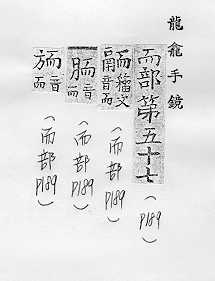 龍龕手鏡
而部第五十七 (P189)
籀文 音而 (而部 P189)
音而 (而部 P189)
音而 (而部 P189)